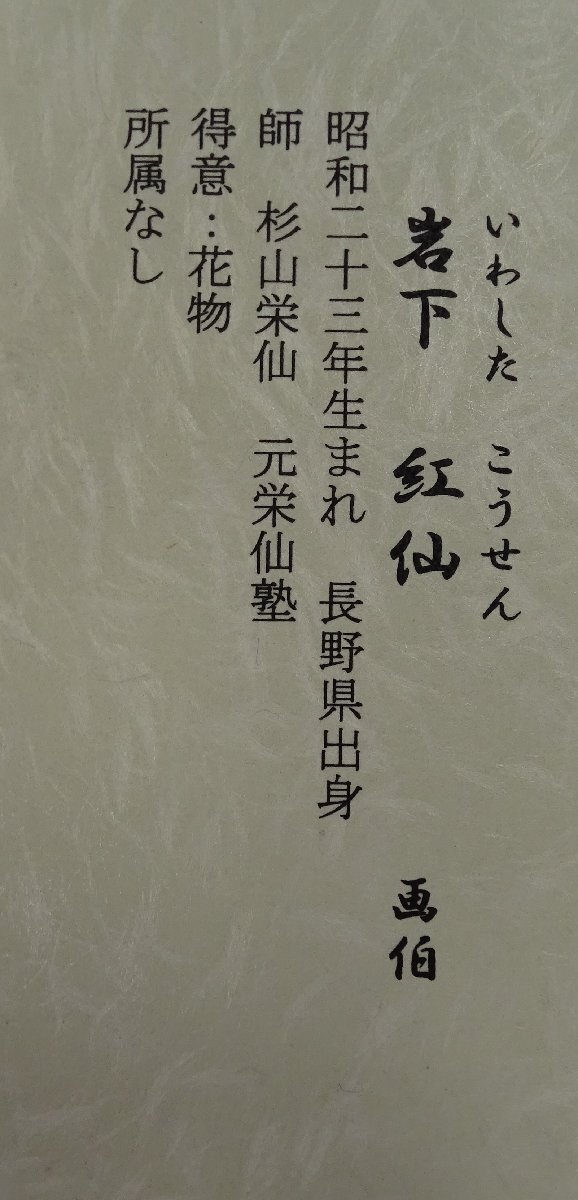 いわした こうせん
岩下 紅仙 画伯
昭和二十三年生まれ 長野県出身
師 杉山栄仙 元栄仙塾
得意：花物
所属なし